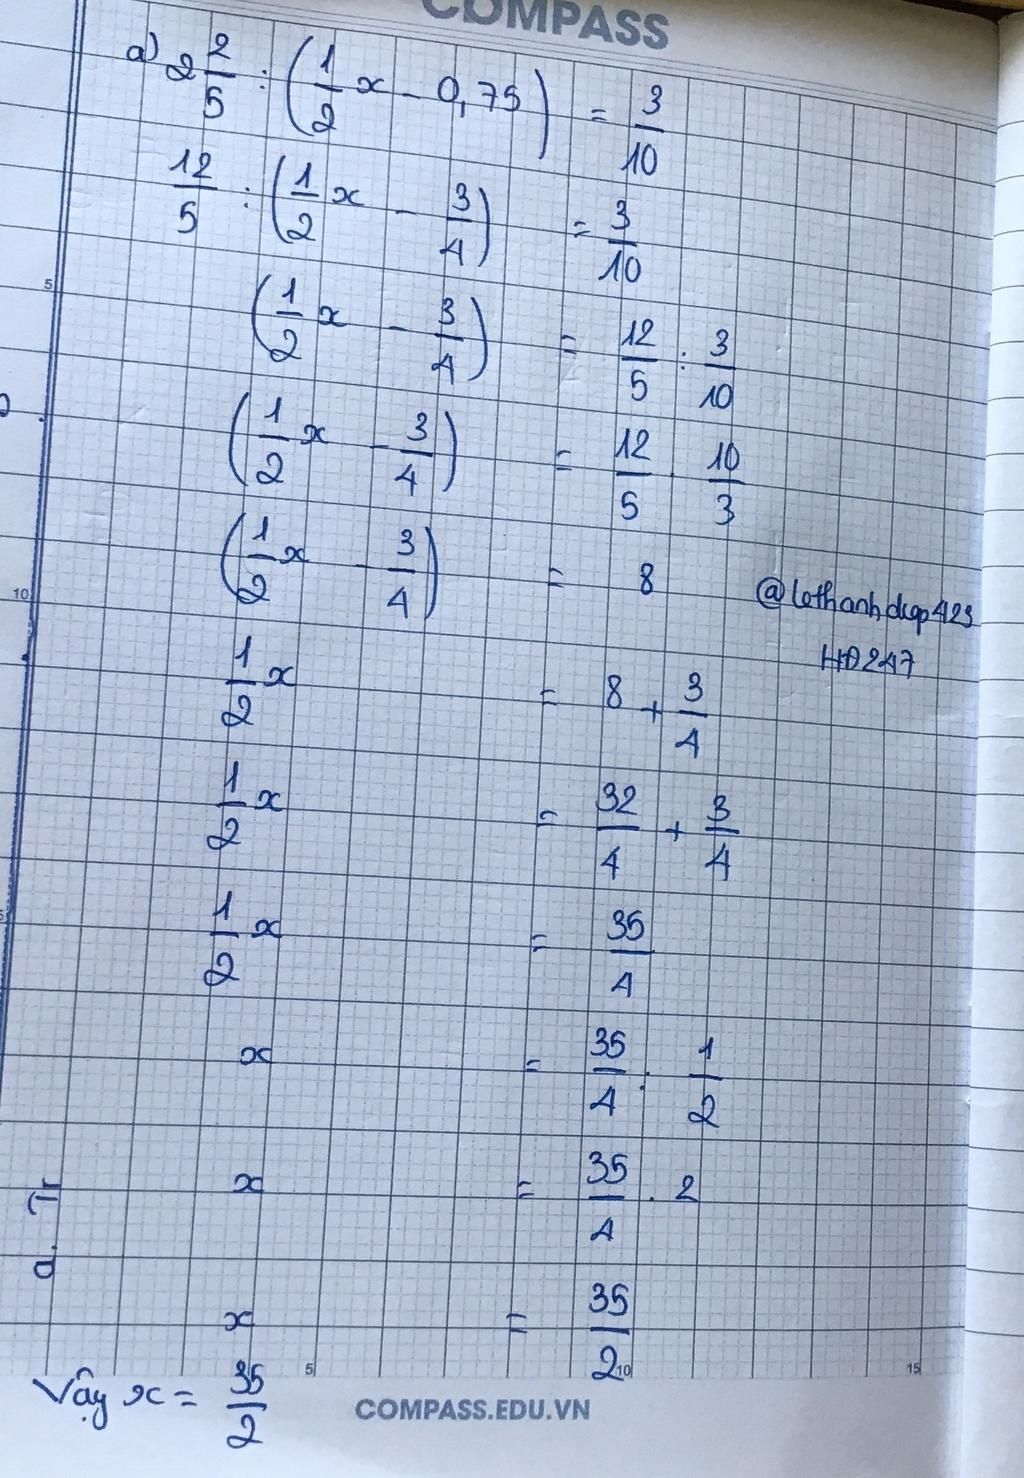 COMPASS
a) 2 2/5 : (1/2 x - 0,75) = 3/10
12/5 : (1/2 x - 3/4) = 3/10
5
(1/2 x - 3/4) = 12/5 : 3/10
(1/2 x - 3/4) = 12/5 . 10/3
(1/2 x - 3/4) = 8
10
@lethanhdiep423
HĐ247
1/2 x = 8 + 3/4
1/2 x = 32/4 + 3/4
1/2 x = 35/4
x = 35/4 : 1/2
x = 35/4 . 2
x = 35/2
5 10 15
Vậy x = 35/2
COMPASS.EDU.VN